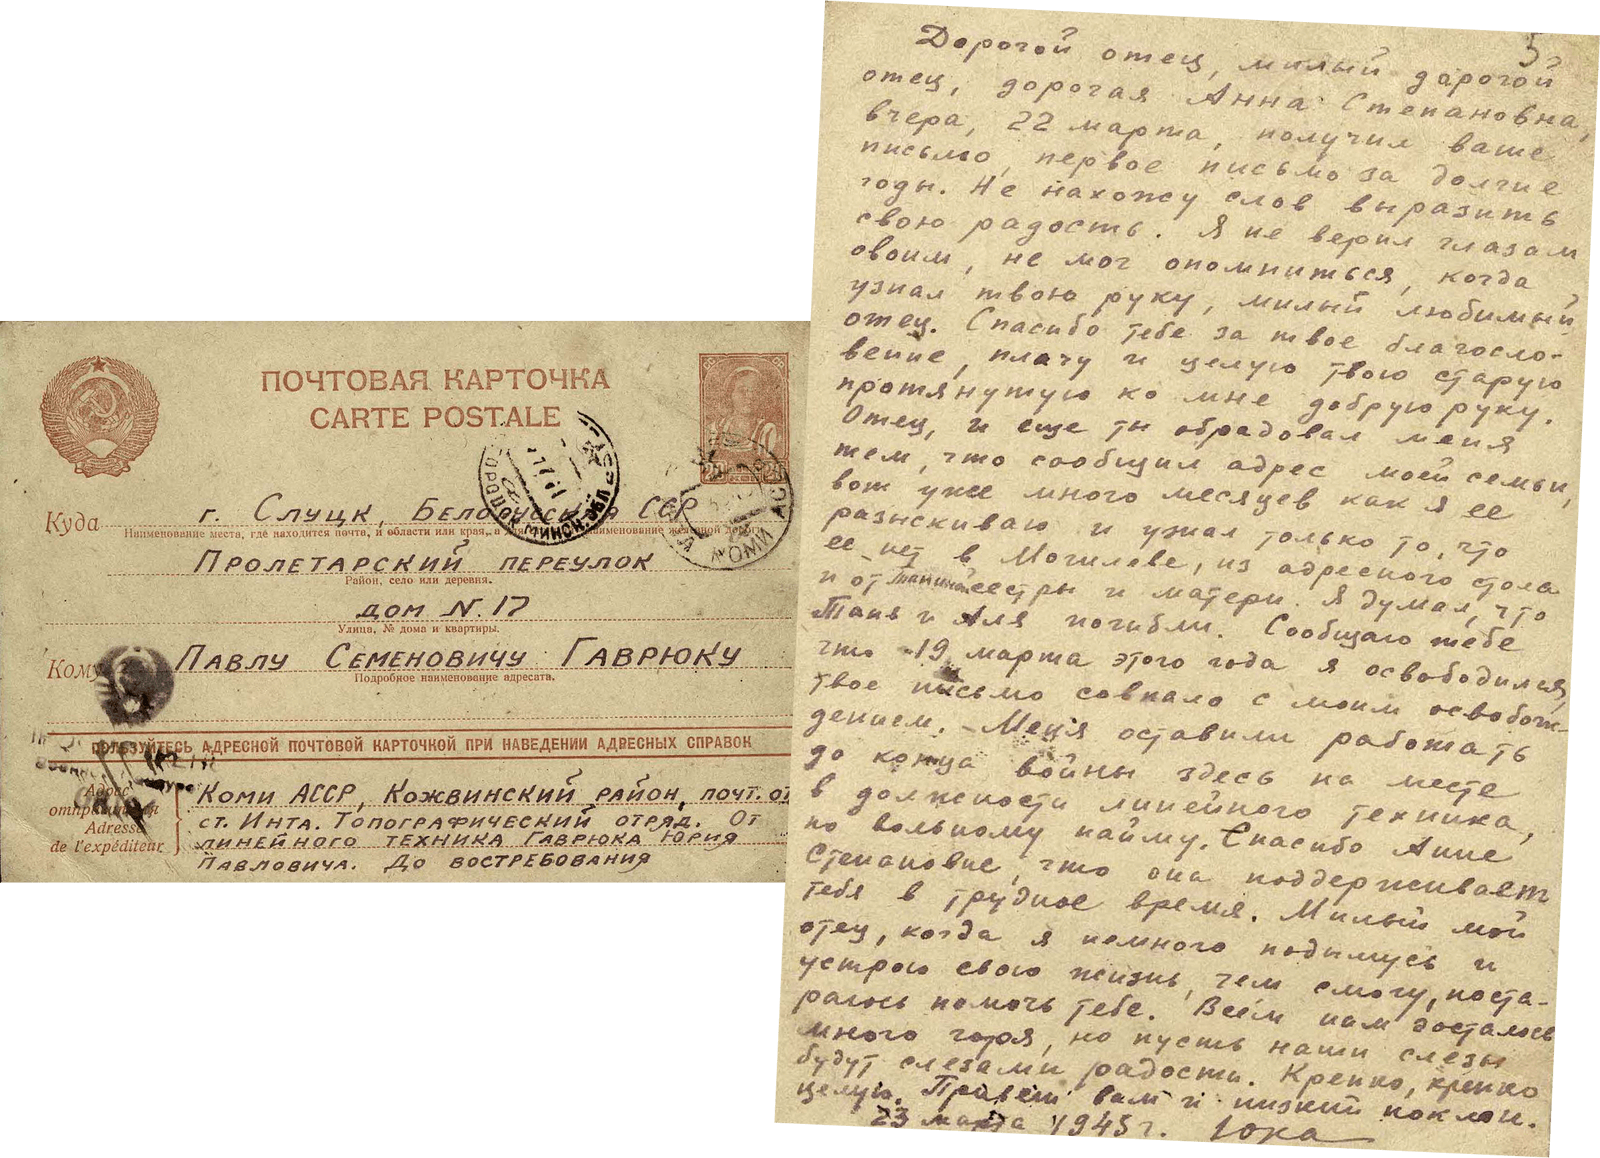 ПОЧТОВАЯ КАРТОЧКА
CARTE POSTALE
Куда г. Слуцк, Белорусская ССР
Наименование места, где находится почта, и области или края, а для наименование железной дороги
Пролетарский переулок
Район, село или деревня.
дом N. 17
Улица, № дома и квартиры.
Кому Павлу Семеновичу Гаврюку
Подробное наименование адресата.
ПОЛЬЗУЙТЕСЬ АДРЕСНОЙ ПОЧТОВОЙ КАРТОЧКОЙ ПРИ НАВЕДЕНИИ АДРЕСНЫХ СПРАВОК
Адрес отправителя
Adresse de l'expéditeur
Коми АССР, Кожвинский район, почт. от
ст. Инта. Топографический отряд. От
линейного техника Гаврюка Юрия
Павловича. До востребования
ГОРОДОК МИНСК. ОБЛ
5
Дорогой отец, милый дорогой
отец, дорогая Анна Степановна,
вчера, 22 марта, получил ваше
письмо, первое письмо за долгие
годы. Не нахожу слов выразить
свою радость. Я не верил глазам
своим, не мог опомниться, когда
узнал твою руку, милый любимый
отец. Спасибо тебе за твое благосло-
вение, плачу и целую твою старую
протянутую ко мне добрую руку.
Отец, и еще ты обрадовал меня
тем, что сообщил адрес моей семьи,
вот уже много месяцев как я ее
разыскиваю и узнал только то, что
ее нет в Могилеве, из адресного стола
и от Таниной сестры и матери. Я думал, что
Таня и Аля погибли. Сообщаю тебе
что 19 марта этого года я освободился,
твое письмо совпало с моим освобож-
дением. Меня оставили работать
до конца войны здесь на месте
в должности линейного техника,
по вольному найму. Спасибо Анне
Степановне, что она поддерживает
тебя в трудное время. Милый мой
отец, когда я немного подымусь и
устрою свою жизнь, чем смогу, поста-
раюсь помочь тебе. Всем нам досталось
много горя, но пусть наши слезы
будут слезами радости. Крепко, крепко
целую. Привет вам и низкий поклон.
23 марта 1945 г. Юка